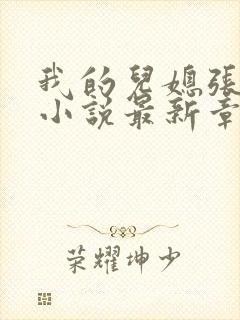 我的兒媳張
小說最新章
荣耀坤少